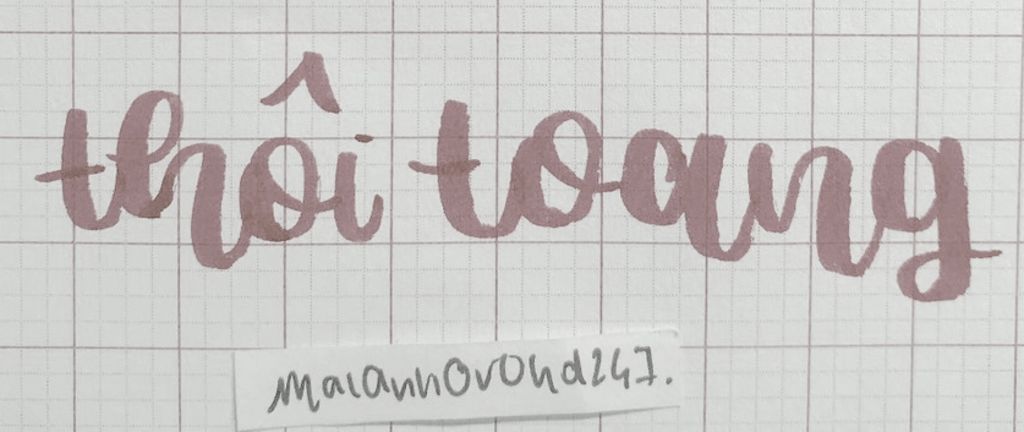 thôi toang
maianhOvOhd247.